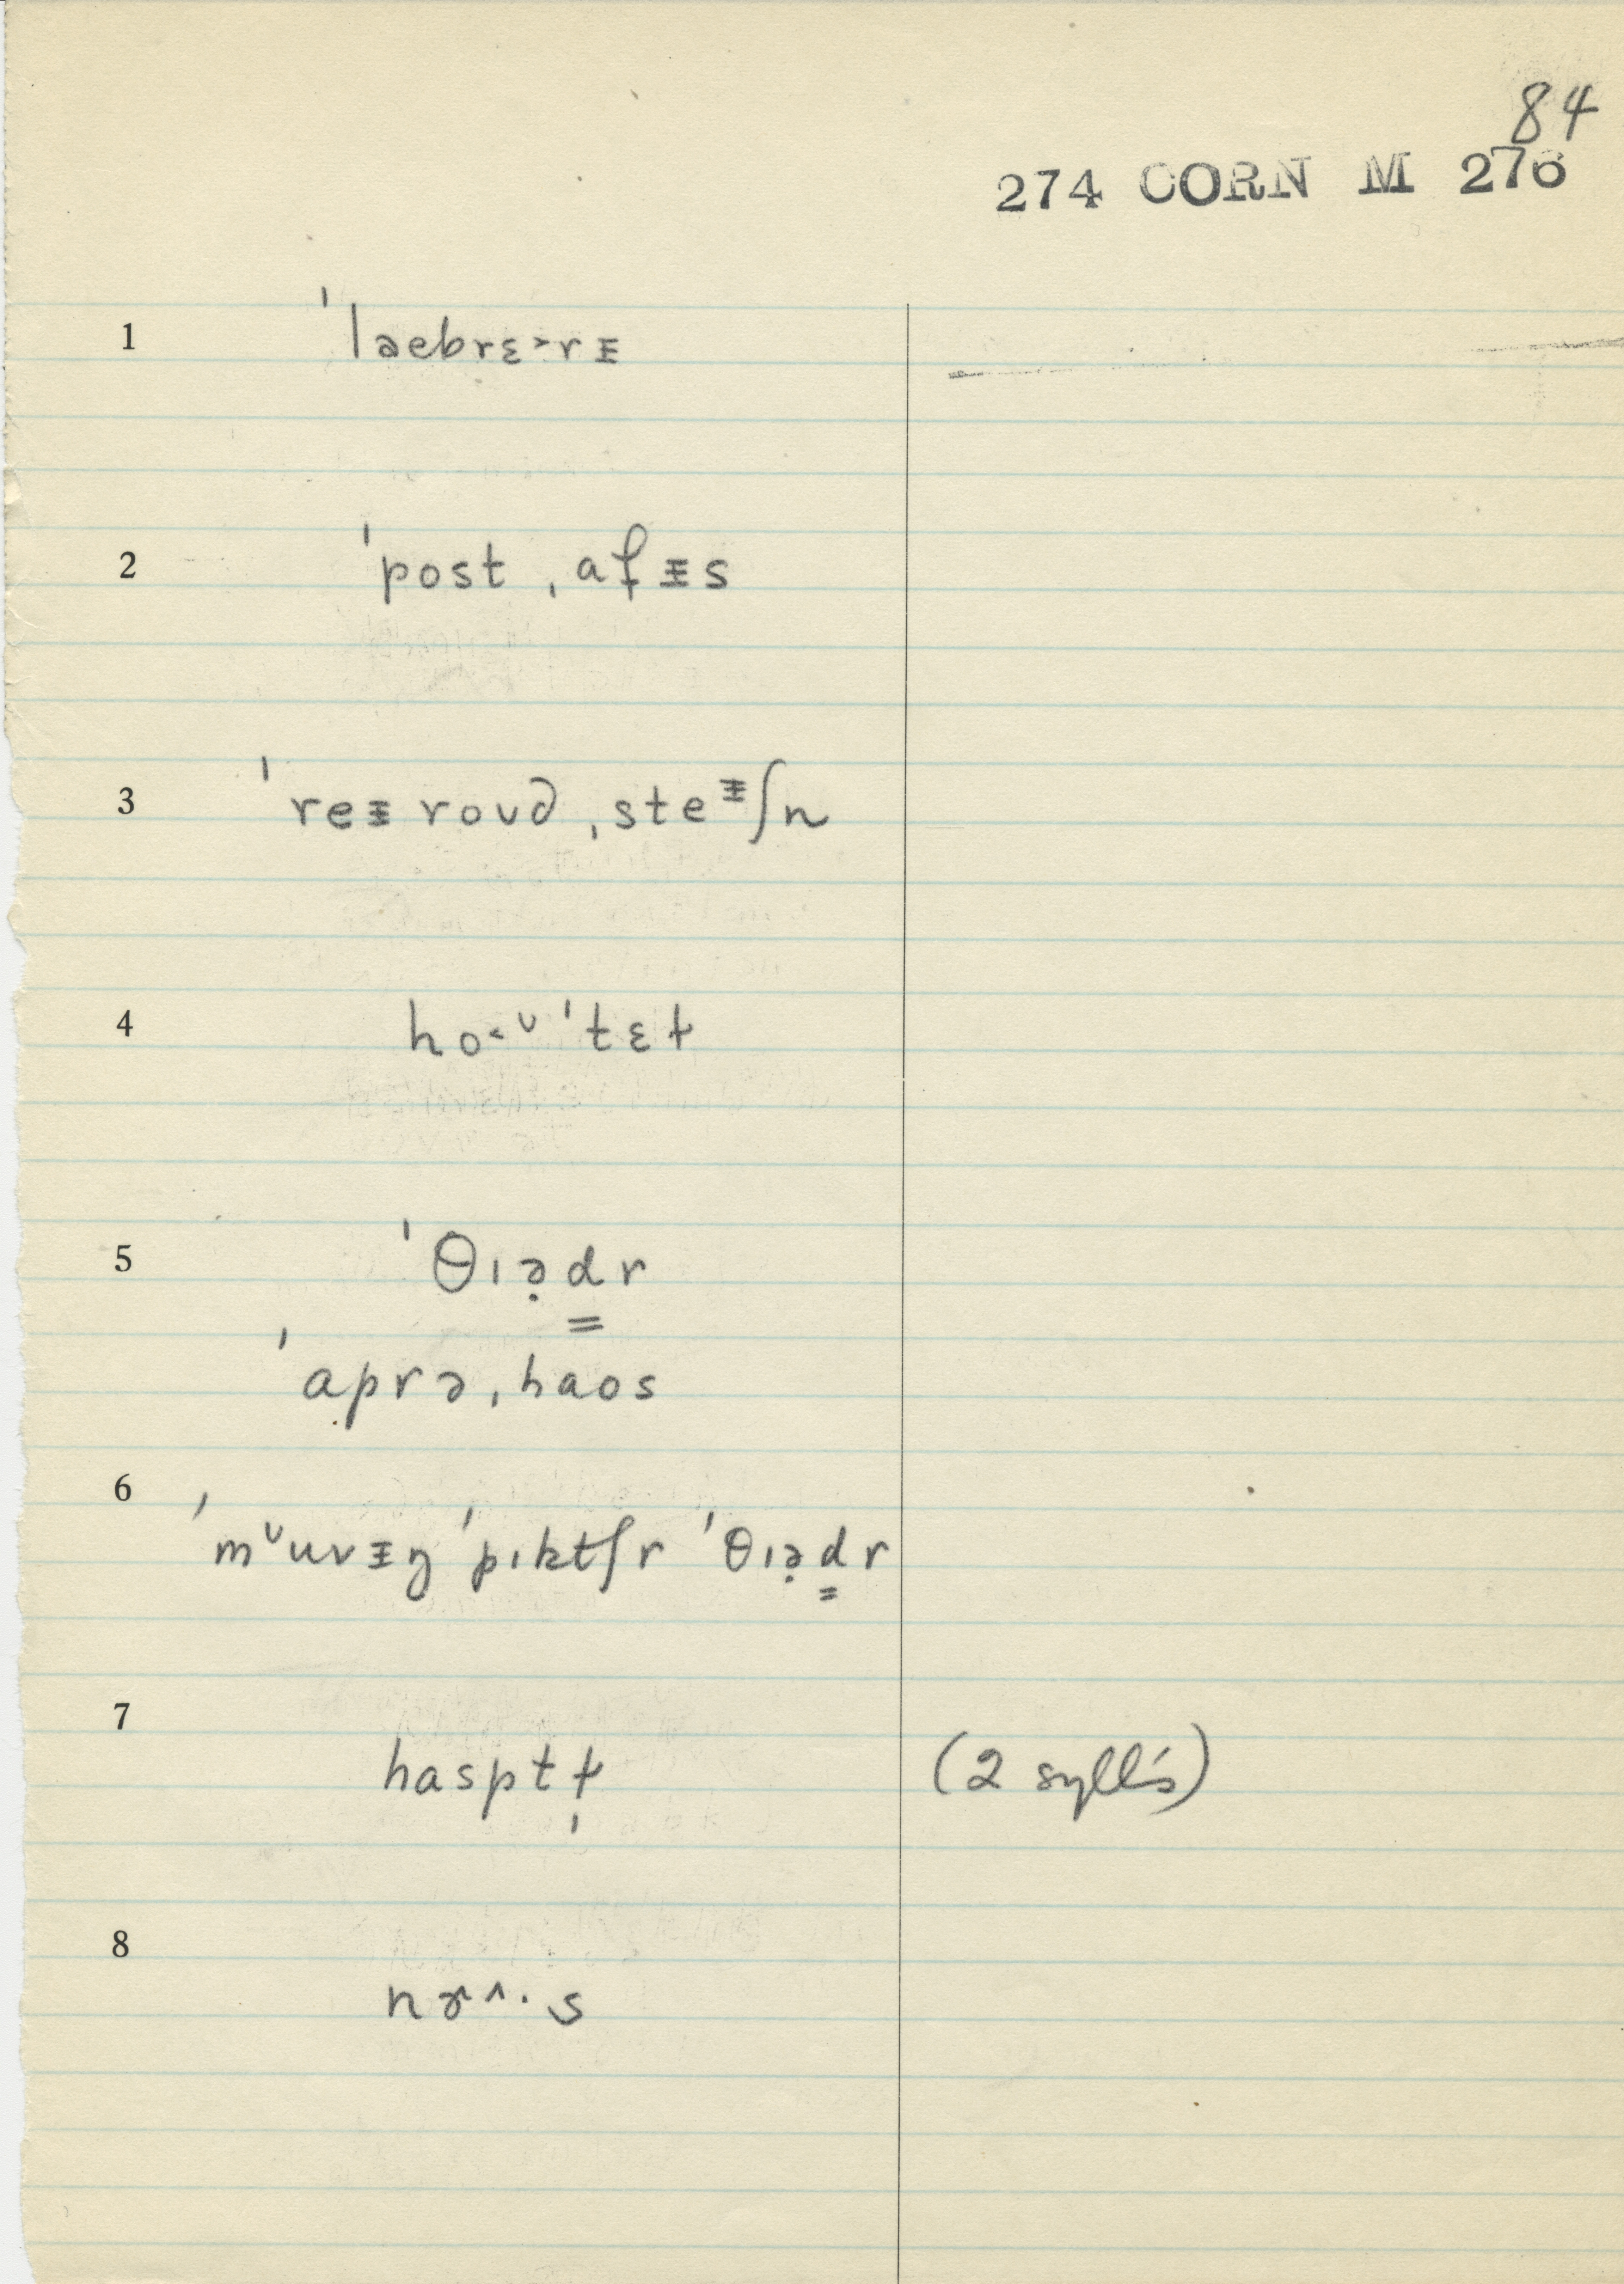 84
274 CORN M 276
1 ˈlaebrɛ˃rᵻ
2 ˈpost ˌafᵻs
3 ˈreᵻ roʊd ˌsteᵻʃn
4 ho˂ᶷ ˈtɛɫ
5 ˈθɪə̣d͇r
ˈaprə ˌhaos
6 ˈmᶷuvᵻŋ ˈpɪktʃr ˈθɪə̣d͇r
7 hasptɫ̩ (2 syll's)
8 nɝ^·s